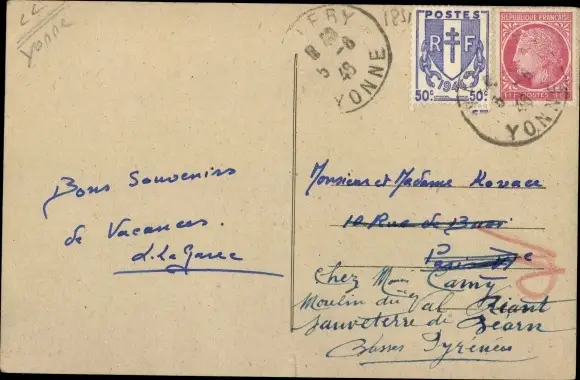 Yonne
LERY
5 -8
46
YONNE
POSTES
RF
194
50c 50c
REPUBLIQUE FRANÇAISE
POSTES
YONNE
Bons Souvenirs
de Vacances.
Monsieur et Madame Kovacs
10 Rue de Buci
Paris
Chez Mme Camy
Moulin du Val Riant
Sauveterre de Béarn
Basses Pyrénées